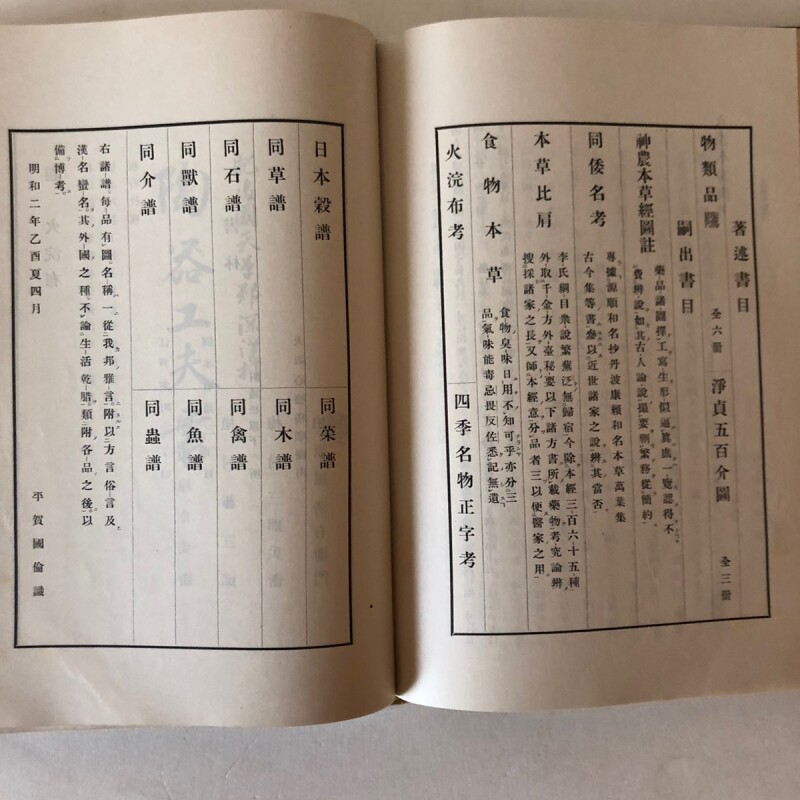 著述書目
物類品隲 全六冊 淨貞五百介圖 全三冊
嗣出書目
神農本草經圖註
藥品諸圖擇工寫生形似逼眞虛一覽認得不
費辨說如其古人論說撮要刪繁務從簡約
同倭名考
專據源順和名抄丹波康賴和名本草萬葉集
古今集等書參以近世諸家之說辨其當否
本草比肩
李氏綱目衆說繁蕪泛無歸宿今除本經三百六十五種
外取千金方外臺秘要以下諸方書所載藥物考究論辨
搜採諸家之長又師本經意分品者三以便醫家之用
食物本草
食物臭味日用不知可乎亦分三
品氣味能毒忌畏反佐悉記無遺
火浣布考 四季名物正字考
日本穀譜 同菜譜
同草譜 同木譜
同石譜 同禽譜
同獸譜 同魚譜
同介譜 同蟲譜
右諸譜每品有圖名稱一從我邦雅言附以方言俗言及
漢名蠻名其外國之種不論生活乾腊類附各品之後以
備博考
明和二年乙酉夏四月
平賀國倫識